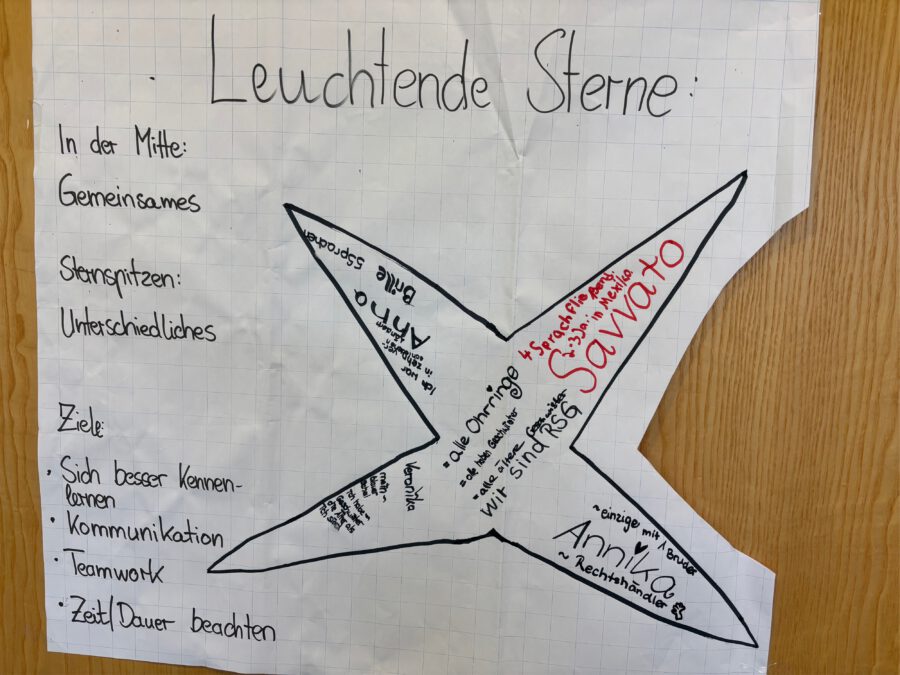 Leuchtende Sterne:
In der Mitte:
Gemeinsames
Sternspitzen:
Unterschiedliches
Ziele:
· Sich besser Kennen-
lernen
· Kommunikation
· Teamwork
· Zeit/Dauer beachten
5Sprachen
Brille
Anna
Ich war
in zehn
4 Sprachfließend
2-3Ja. in Mexiko
Savvato
- alle Ohrringe
- alle haben Geschwister
- alle ältere Geschwister
wir sind RSG
Veronika
mein
blauer
ich habe
~ einzige mit 1 Bruder
Annika
~ Rechtshändler